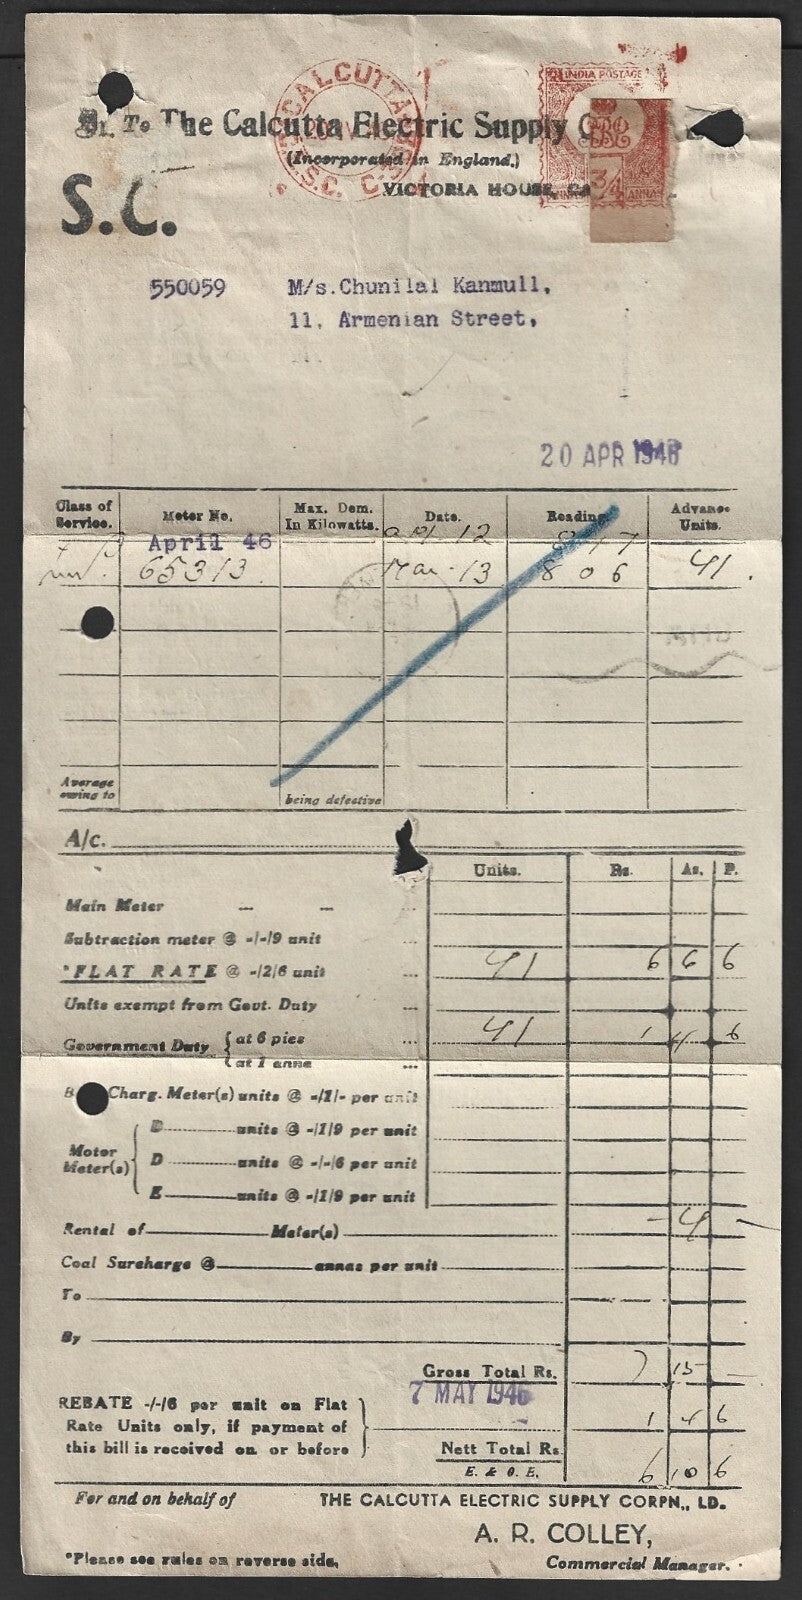 Dr. To The Calcutta Electric Supply
(Incorporated in England.)
VICTORIA HOUSE,
CALCUTTA
S.C. C.
INDIA POSTAGE
3/4
ANNA
S.C.
550059 M/s.Chunilal Kanmull,
11, Armenian Street,
20 APR 1946
Class of Service. Meter No. Max. Dem. In Kilowatts. Date. Reading. Advance Units.
April 46 apl 12 847
65313 Mar 13 806 41.
Average owing to being defective
A/c.
Units. Rs. As. P.
Main Meter
Subtraction meter @ -/-/9 unit
*FLAT RATE @ -/2/6 unit 41 6 6 6
Units exempt from Govt. Duty
Government Duty { at 6 pies 41 1 4 6
at 1 anna
Charg. Meter(s) units @ -/1/- per unit
Motor Meter(s) { D units @ -/1/9 per unit
D units @ -/-/6 per unit
E units @ -/1/9 per unit
Rental of Meter(s) - 4 -
Coal Surcharge @ annas per unit
To
By
Gross Total Rs. 7 15 -
7 MAY 1946
REBATE -/-/6 per unit on Flat
Rate Units only, if payment of 1 4 6
this bill is received on or before Nett Total Rs. 6 10 6
E. & O. E.
For and on behalf of THE CALCUTTA ELECTRIC SUPPLY CORPN., LD.
A. R. COLLEY,
*Please see rules on reverse side. Commercial Manager.